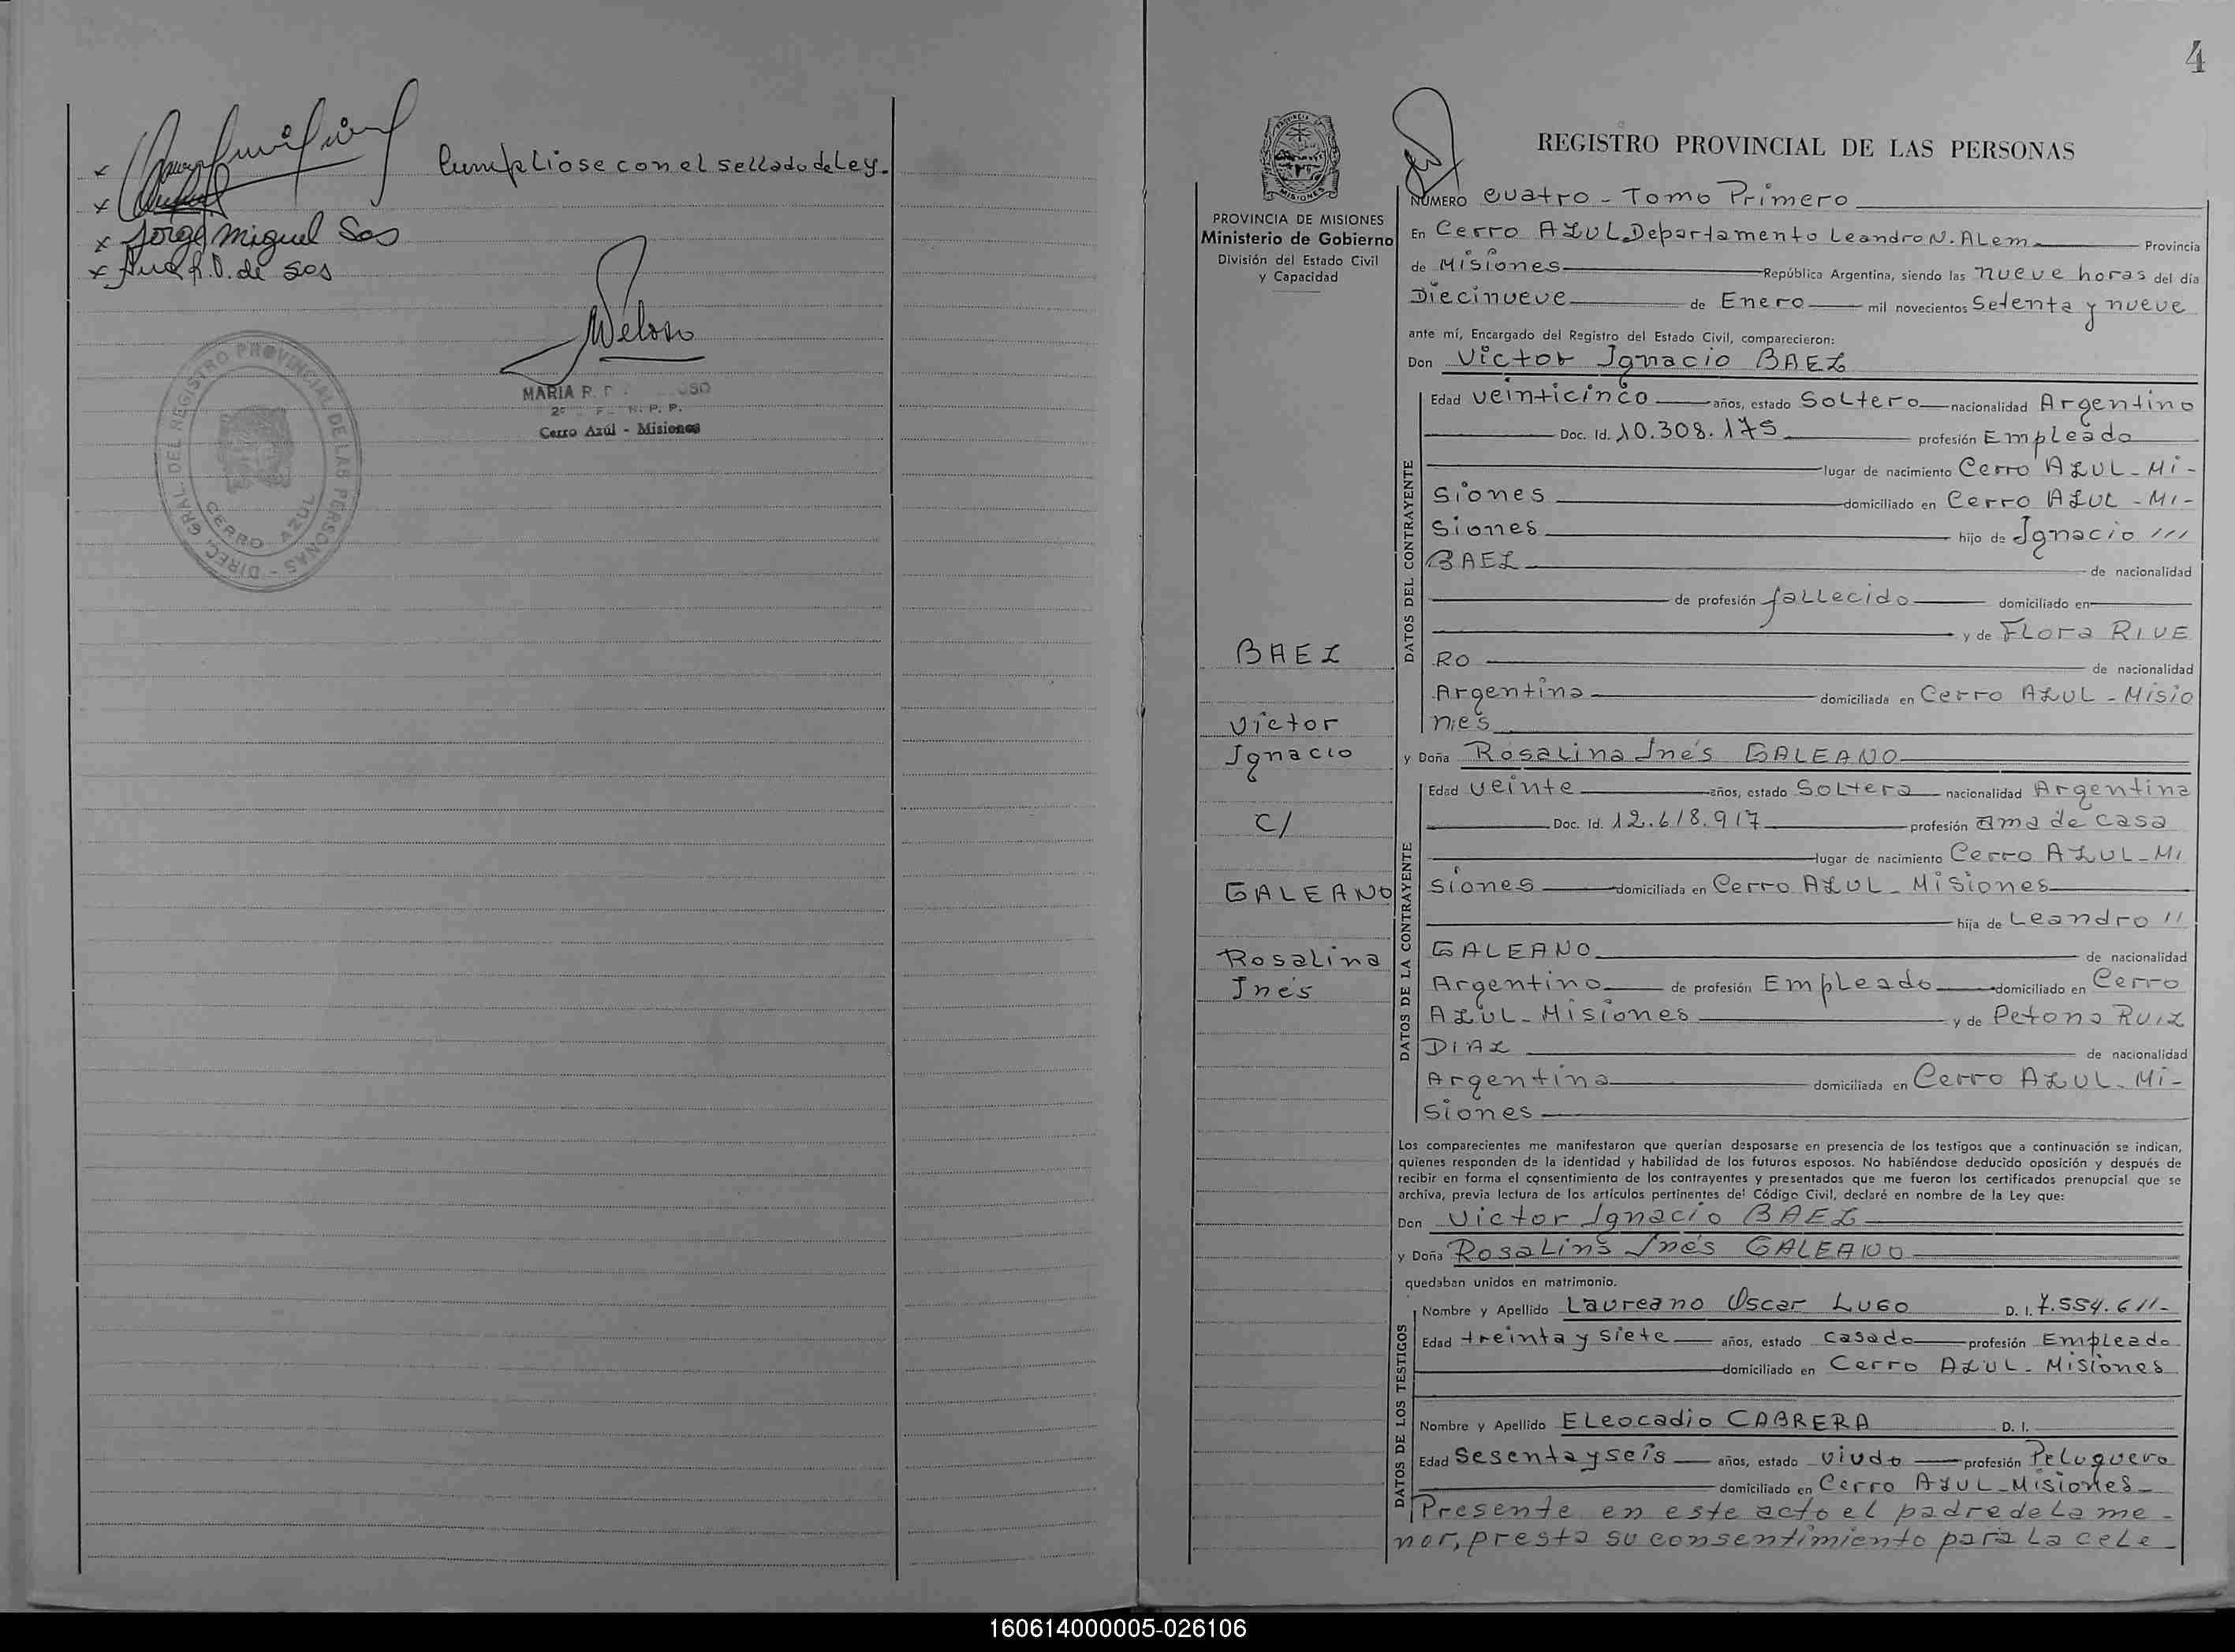 Cumpliose con el sellado de Ley.
x
x
x Jorge Miguel Sos
x Ana R. D. de Sos
Weloso
MARIA R.
2º N. P. P.
Cerro Azúl - Misiones
DIREC. GRAL. DEL REGISTRO PROVINCIAL DE LAS PERSONAS -
CERRO AZUL
4
PROVINCIA DE
MISIONES
PROVINCIA DE MISIONES
Ministerio de Gobierno
División del Estado Civil
y Capacidad
BAEZ
Victor
Ignacio
C/
GALEANO
Rosalina
Inés
REGISTRO PROVINCIAL DE LAS PERSONAS
NUMERO cuatro - Tomo Primero
En Cerro AZUL Departamento Leandro N. ALem Provincia
de Misiones República Argentina, siendo las nueve horas del día
Diecinueve de Enero mil novecientos Setenta y nueve
ante mí, Encargado del Registro del Estado Civil, comparecieron:
Don Victor Ignacio BAEZ
DATOS DEL CONTRAYENTE
Edad veinticinco años, estado Soltero nacionalidad Argentino
Doc. Id. 10.308.175 profesión Empleado
lugar de nacimiento Cerro AZUL - Mi-
siones domiciliado en Cerro AZUL - Mi-
siones hijo de Ignacio ///
BAEZ de nacionalidad
de profesión fallecido domiciliado en
y de Flora RIVE
RO de nacionalidad
Argentina domiciliada en Cerro AZUL - Misio
nes
y Doña Rosalina Inés GALEANO
DATOS DE LA CONTRAYENTE
Edad veinte años, estado Soltera nacionalidad Argentina
Doc. Id. 12.618.917 profesión ama de casa
lugar de nacimiento Cerro AZUL - Mi
siones domiciliada en Cerro AZUL - Misiones
hija de Leandro //
GALEANO de nacionalidad
Argentino de profesión Empleado domiciliado en Cerro
AZUL - Misiones y de Petona RUIZ
DIAZ de nacionalidad
Argentina domiciliada en Cerro AZUL - Mi-
siones
Los comparecientes me manifestaron que querían desposarse en presencia de los testigos que a continuación se indican,
quienes responden de la identidad y habilidad de los futuros esposos. No habiéndose deducido oposición y después de
recibir en forma el consentimiento de los contrayentes y presentados que me fueron los certificados prenupcial que se
archiva, previa lectura de los artículos pertinentes del Código Civil, declaré en nombre de la Ley que:
Don Victor Ignacio BAEZ
y Doña Rosalina Inés GALEANO
quedaban unidos en matrimonio.
DATOS DE LOS TESTIGOS
Nombre y Apellido Laureano Oscar LUGO D. I. 7.554.611-
Edad treinta y siete años, estado casado profesión Empleado
domiciliado en Cerro AZUL - Misiones
Nombre y Apellido Eleocadio CABRERA D. I.
Edad Sesenta y seis años, estado viudo profesión Peluquero
domiciliado en Cerro AZUL - Misiones
Presente en este acto el padre de la me-
nor, presta su consentimiento para la cele-
160614000005-026106